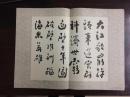 大江歌罷掉
頭東邃密群
科濟世窮
面壁十年圖
破壁難酬蹈
海亦英雄